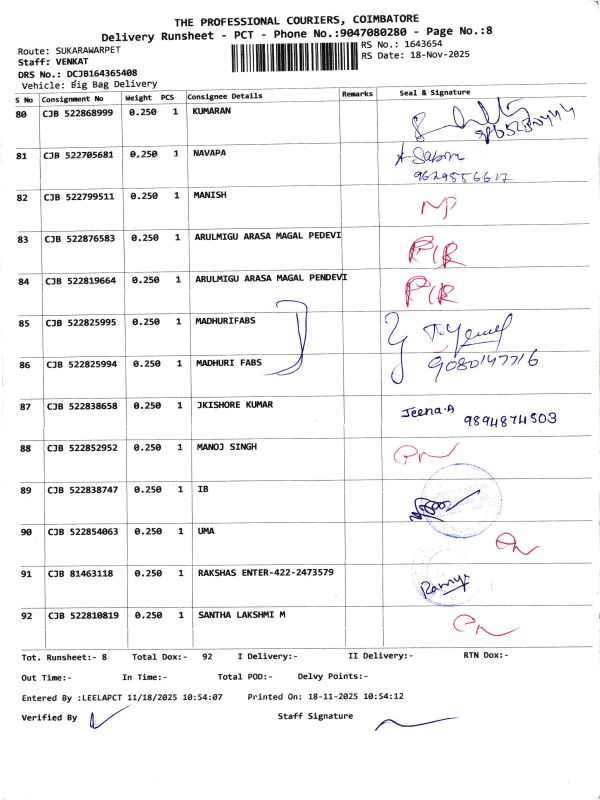 THE PROFESSIONAL COURIERS, COIMBATORE
Delivery Runsheet - PCT - Phone No.:9047080280 - Page No.:8
Route: SUKARAWARPET
RS No.: 1643654
Staff: VENKAT
RS Date: 18-Nov-2025
DRS No.: DCJB164365408
Vehicle: Big Bag Delivery
S No Consignment No Weight PCS Consignee Details Remarks Seal & Signature
80 CJB 522868999 0.250 1 KUMARAN
81 CJB 522705681 0.250 1 NAVAPA
82 CJB 522799511 0.250 1 MANISH NP
83 CJB 522876583 0.250 1 ARULMIGU ARASA MAGAL PEDEVI P/R
84 CJB 522819664 0.250 1 ARULMIGU ARASA MAGAL PENDEVI P/R
85 CJB 522825995 0.250 1 MADHURIFABS
86 CJB 522825994 0.250 1 MADHURI FABS 9080147716
87 CJB 522838658 0.250 1 JKISHORE KUMAR Jeena.A 9894874503
88 CJB 522852952 0.250 1 MANOJ SINGH
89 CJB 522838747 0.250 1 IB
90 CJB 522854063 0.250 1 UMA
91 CJB 81463118 0.250 1 RAKSHAS ENTER-422-2473579 Ramya
92 CJB 522810819 0.250 1 SANTHA LAKSHMI M
Tot. Runsheet:- 8 Total Dox:- 92 I Delivery:- II Delivery:- RTN Dox:-
Out Time:- In Time:- Total POD:- Delvy Points:-
Entered By :LEELAPCT 11/18/2025 10:54:07 Printed On: 18-11-2025 10:54:12
Verified By Staff Signature